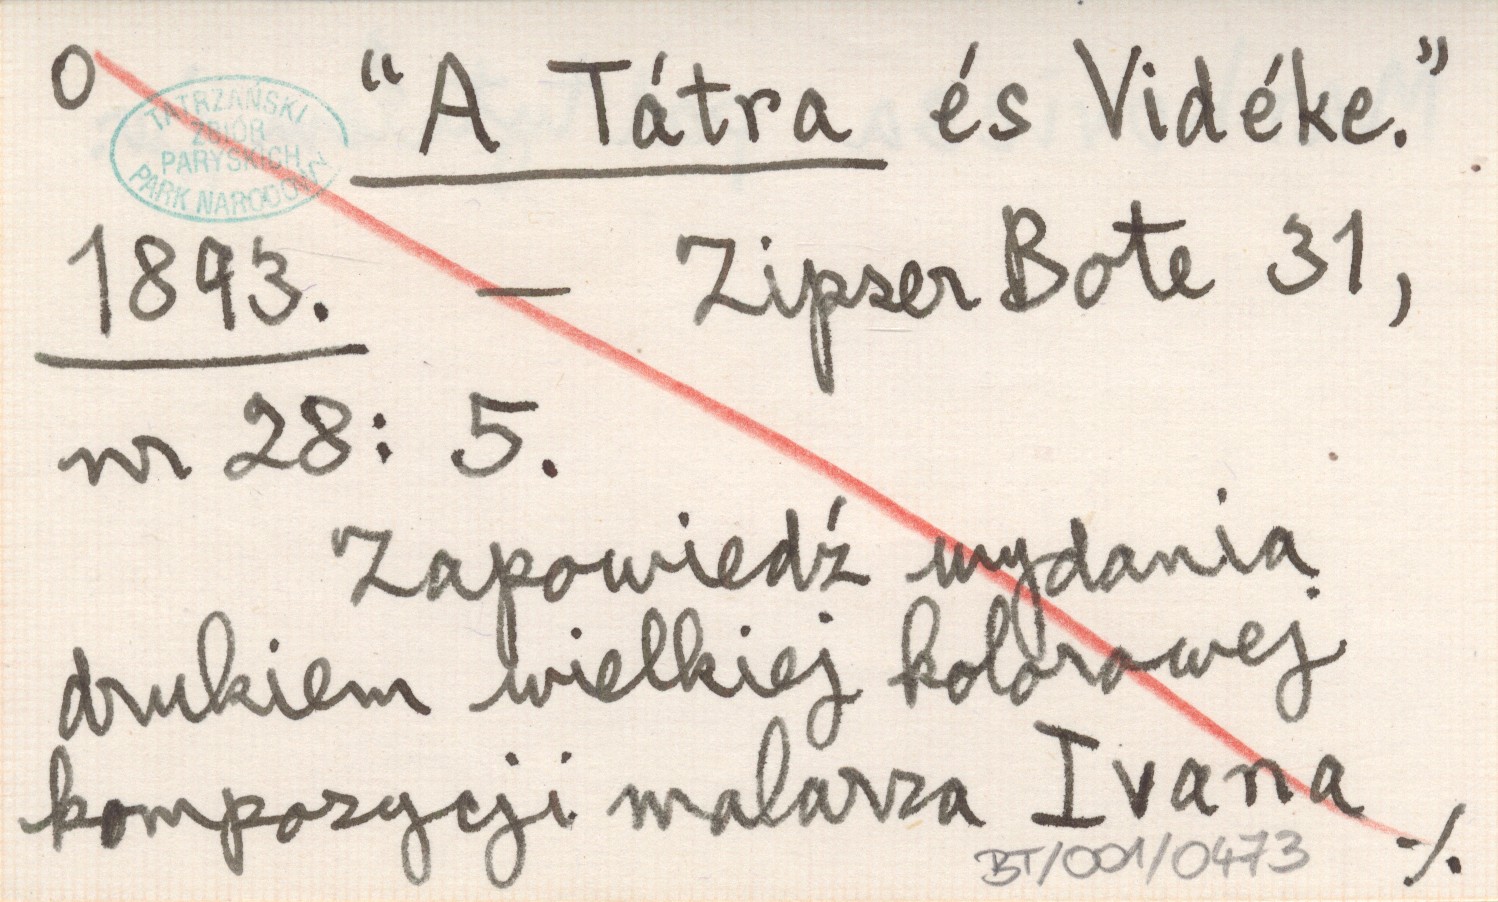 O “A Tátra és Vidéke.”
TATRZAŃSKI
ZBIÓR
PARYSKICH
PARK NARODOWY
1893. — Zipser Bote 31,
nr 28: 5.
Zapowiedź wydania
drukiem wielkiej kolorowej
kompozycji malarza Ivana
BT/001/0473 ·/.